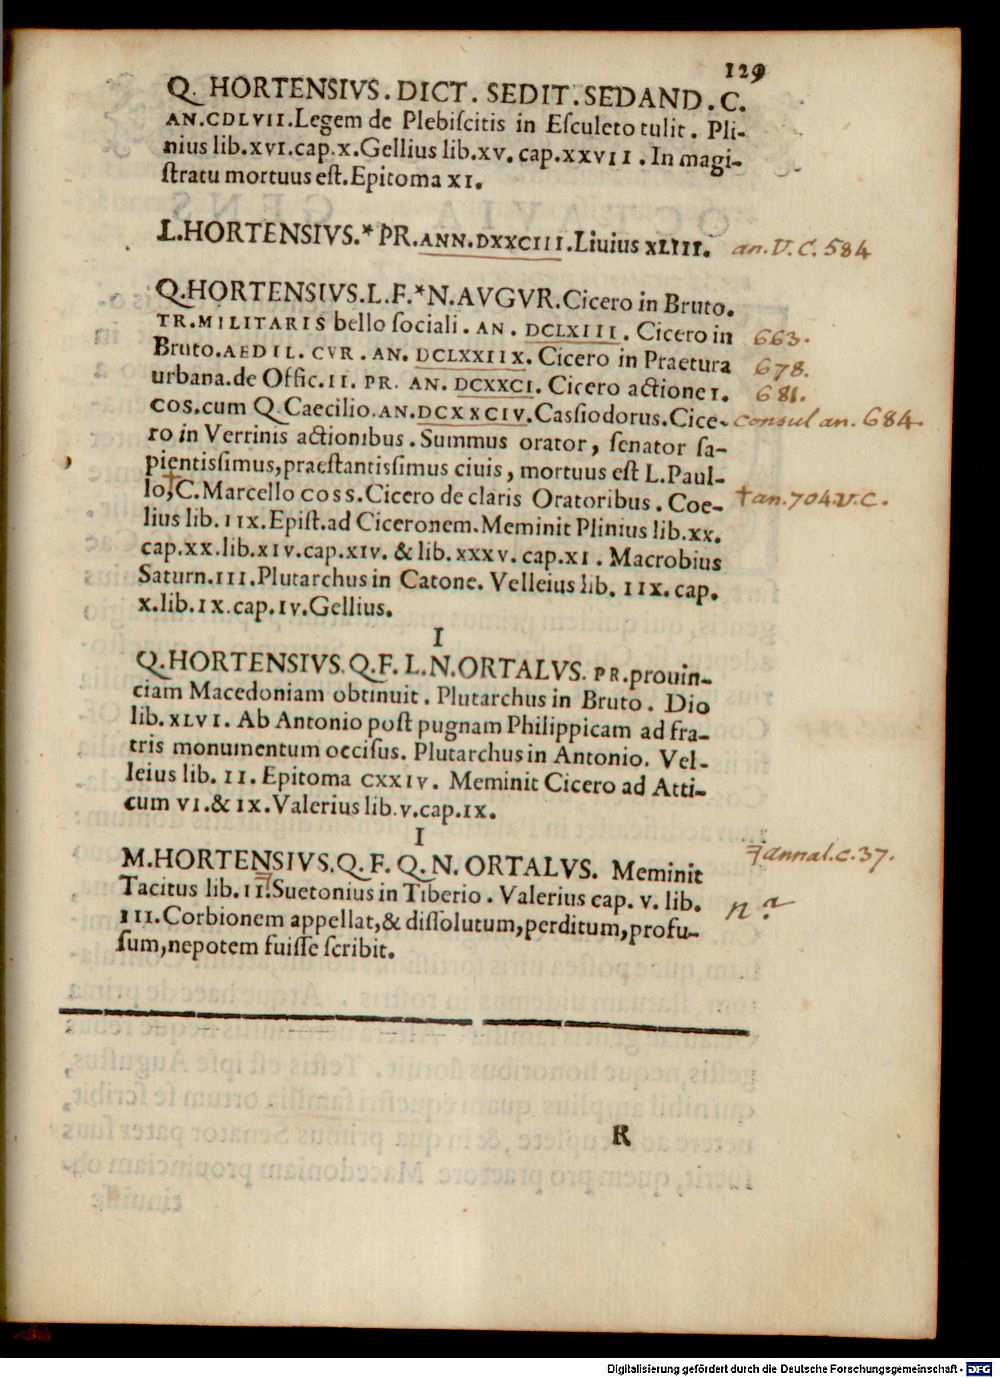 129
Q. HORTENSIVS. DICT. SEDIT. SEDAND. C.
AN. CDLVII. Legem de Plebiſcitis in Eſculeto tulit. Pli-
nius lib. XVI. cap. X. Gellius lib. XV. cap. XXVII. In magi-
ſtratu mortuus eſt. Epitoma XI.
L. HORTENSIVS. * PR. ANN. DXXCIII. Liuius XLIII. an. V. C. 584
Q. HORTENSIVS. L. F. * N. AVGVR. Cicero in Bruto.
TR. MILITARIS bello ſociali. AN. DCLXIII. Cicero in 663.
Bruto. AEDIL. CVR. AN. DCLXXIIX. Cicero in Praetura 678.
urbana. de Offic. II. PR. AN. DCXXCI. Cicero actione I. 681.
COS. cum Q. Caecilio. AN. DCXXCIV. Caſsiodorus. Cice- consul an. 684.
ro in Verrinis actionibus. Summus orator, ſenator ſa-
pientiſsimus, praeſtantiſsimus ciuis, mortuus eſt L. Paul-
lo, † C. Marcello COSS. Cicero de claris Oratoribus. Coe- † an. 704. V. C.
lius lib. IIX. Epiſt. ad Ciceronem. Meminit Plinius lib. XX.
cap. XX. lib. XIV. cap. XIV. & lib. XXXV. cap. XI. Macrobius
Saturn. III. Plutarchus in Catone. Velleius lib. IIX. cap.
X. lib. IX. cap. IV. Gellius.
I
Q. HORTENSIVS. Q. F. L. N. ORTALVS. PR. prouin-
ciam Macedoniam obtinuit. Plutarchus in Bruto. Dio
lib. XLVI. Ab Antonio poſt pugnam Philippicam ad fra-
tris monumentum occiſus. Plutarchus in Antonio. Vel-
leius lib. II. Epitoma CXXIV. Meminit Cicero ad Atti-
cum VI. & IX. Valerius lib. V. cap. IX.
I
M. HORTENSIVS. Q. F. Q. N. ORTALVS. Meminit annal. c. 37.
Tacitus lib. II. Suetonius in Tiberio. Valerius cap. V. lib.
III. Corbionem appellat, & diſſolutum, perditum, profu-
ſum, nepotem fuiſſe ſcribit.
R
Digitalisierung gefördert durch die Deutsche Forschungsgemeinschaft - DFG